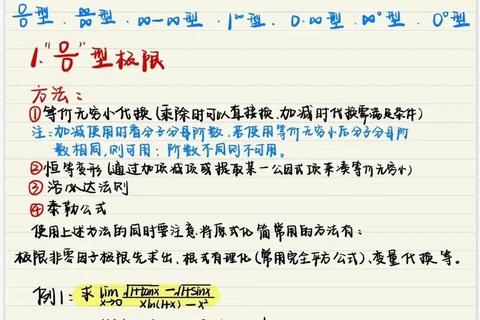 0/0型、∞/∞型、∞-∞型、1^∞型、0·∞型、∞⁰型、0⁰型
1."0/0"型极限
方法：
①等价无穷小代换(乘除时可以直接换、加减时代换需满足条件)
注:加减使用时看分子分母阶数,若使用等价无穷小后分子分母阶
数相同,则可用;阶数不同则不可用。
②恒等变形(通过加项减项或提取某一公因式项来凑等价无穷小)
③洛必达法则
④泰勒公式
使用上述方法的同时要注意将原式化简常用的方法有:
极限非零因子极限先求出、根式有理化(常用完全平方公式)、变量代换等。
例1:求 lim x→0 (√(1+tanx) - √(1+sinx))/(xln(1+x) - x²)